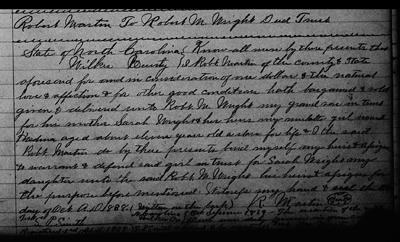 Robert Martin To Robert M. Wright Deed Trust
State of North Carolina Know all men by these presents that
Wilkes County I Robt Martin of the county & State
aforesaid for and in consideration of one dollar & the natural
love & affection & for other good condition hath bargained & sold
given & delivered unto Robt M. Wright my grand son in trust
for his mother Sarah Wright & her heirs my mulatto girl named
aged about eleven year old a slave for life & I the said
Robt Martin do by these presents bind myself my heirs & assigns
to warrant & defend said girl in trust for Sarah Wright my
daughter unto the said Robt M. Wright his heirs & assigns for
the purpose before mentioned. Witness my hand & seal the
day of Oct A.D. 1838. R. Martin
Smith